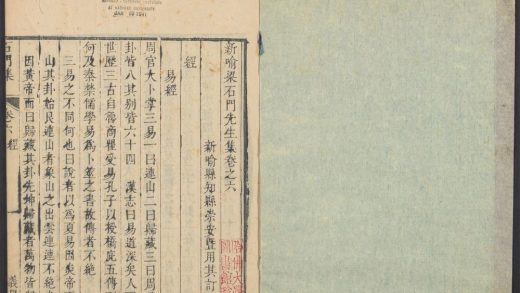 新喻梁石門先生集卷之六
新喻縣知縣崇安暨用其訂
經
易經
周官大卜掌三易一曰連山二曰歸藏三曰周
卦皆八其別皆六十四 漢志曰易道深矣人
世歷三古自魯商瞿受易孔子以授橋庇五傳
何及秦禁儒學易為卜筮之書故傳者不絶
三易之不同何也曰說者以為夏易因炎帝
山其卦始艮連山者象山之出雲連連不絶
因黃帝而曰歸藏其卦先坤歸藏者萬物皆
石門集 卷六 經